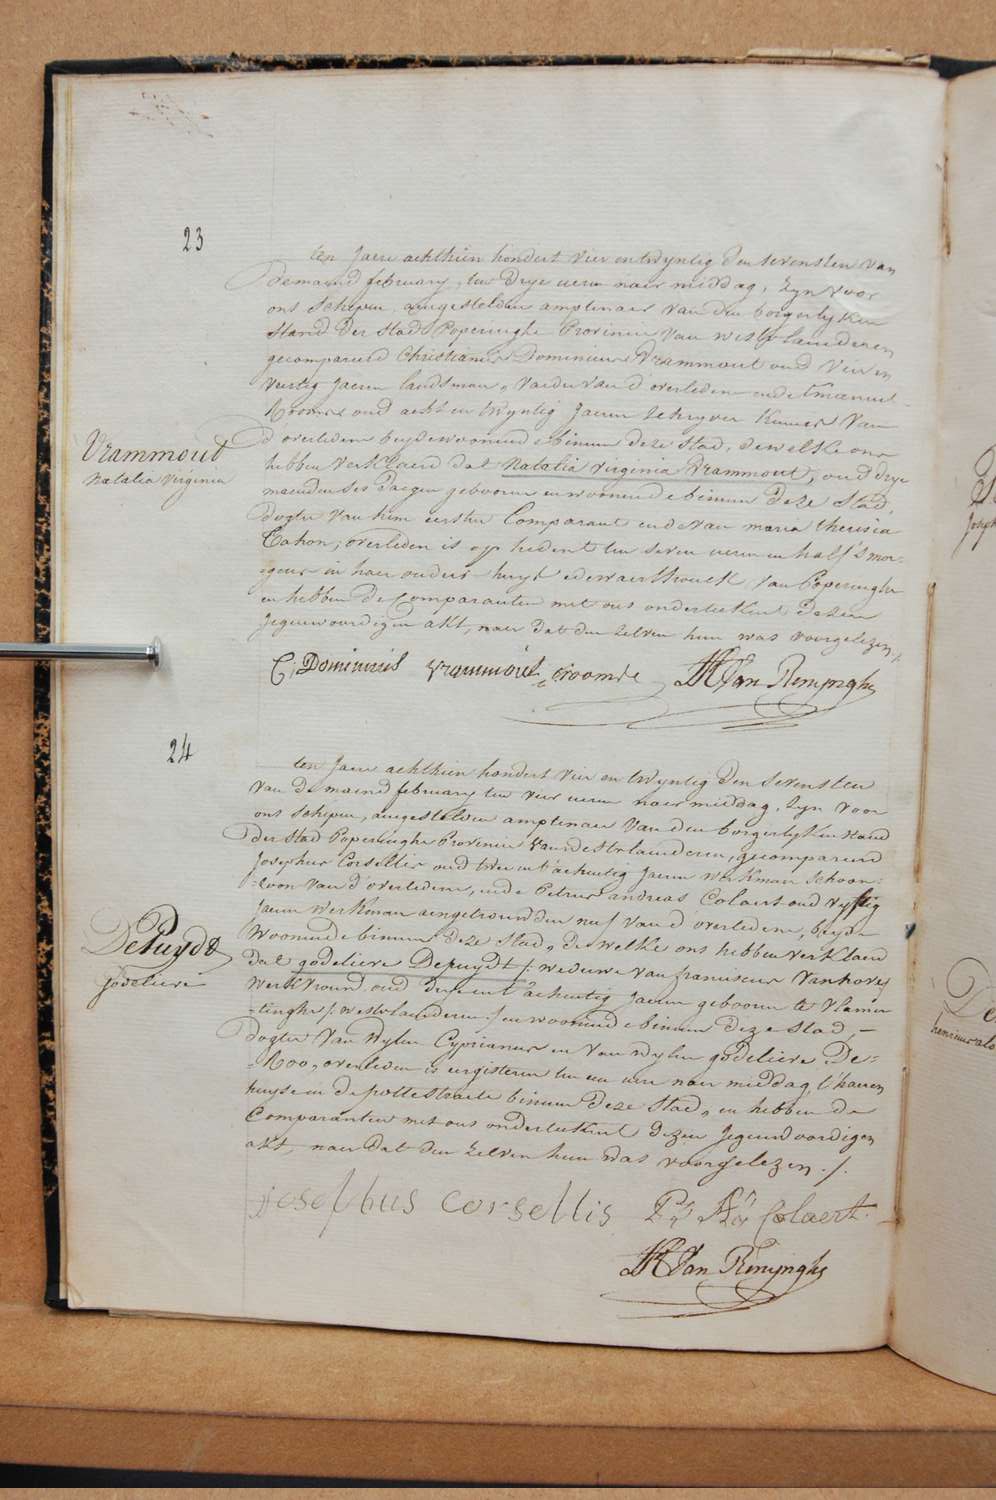 23
ten Jaere achthien hondert vier en twyntig den sevensten van
de maend february, ten drye uren naer middag, zyn voor
ons Schepen, aengestelden amptenaer van den borgerlyken
stand der stad Poperinghe Provincie van westvlaenderen
gecompareerd Christianus Dominicus Vrammout oud vier en
veertig Jaeren landsman, vader van d'overleden ende Emanuel
Roomse oud acht en twyntig Jaeren schryver kennis van
d'overleden beyde woonende binnen deze stad, dewelke ons
hebben verklaerd dat Natalia Virginia Vrammout, oud drye
maenden ses daegen gebooren en woonende binnen deze stad,
dogter van hem eersten Comparant ende van maria theresia
Cahon, overleden is op heden ten seven uren en half 's mor-
gens in haer ouders huys edewaerthoeck van Poperinghe
en hebben de Comparanten met ons onderteekent dezen
Jegenwoordigen akt, naer dat den zelven hun was voorgelezen ./.
Vrammout
Natalia Virginia
C, Dominicus Vrammout E roomse HVan Renynghe
24
ten Jaere achthien hondert vier en twyntig den sevensten
van de maend february ten vier uren naer middag, zyn voor
ons schepen, aengestelden amptenaer van den borgerlyken stand
der stad Poperinghe Provincie van westvlaenderen, gecompareerd
Josephus Corsellis oud twee en t'achentig Jaeren werkman schoon=
=zoon van d'overledene, ende Petrus andreas Colaert oud vyftig
Jaeren werkman aengetrouwden neef van d'overledene, beyde
woonende binnen deze stad, de welke ons hebben verklaerd
dat godeliere Depuydt /: weduwe van franciscus Vanhove /
werkvrouw, oud drye en t'achentig Jaeren geboren te Vlamer
=tinghe /: westvlaenderen :/ en woonende binnen deze stad, —
dogter van wylen Cyprianus en van wylen godeliere De=
=Roo, overleden is eergisteren ten een ure naer middag, t'haeren
huyse in de pottestraete binnen deze stad, en hebben de
Comparanten met ons onderteekent dezen Jegenwoordigen
akt, naer dat den zelven hun was voorgelezen ./.
DePuydt
godeliere
josephus corsellis Pr Ads Colaert.
HVan Renynghe